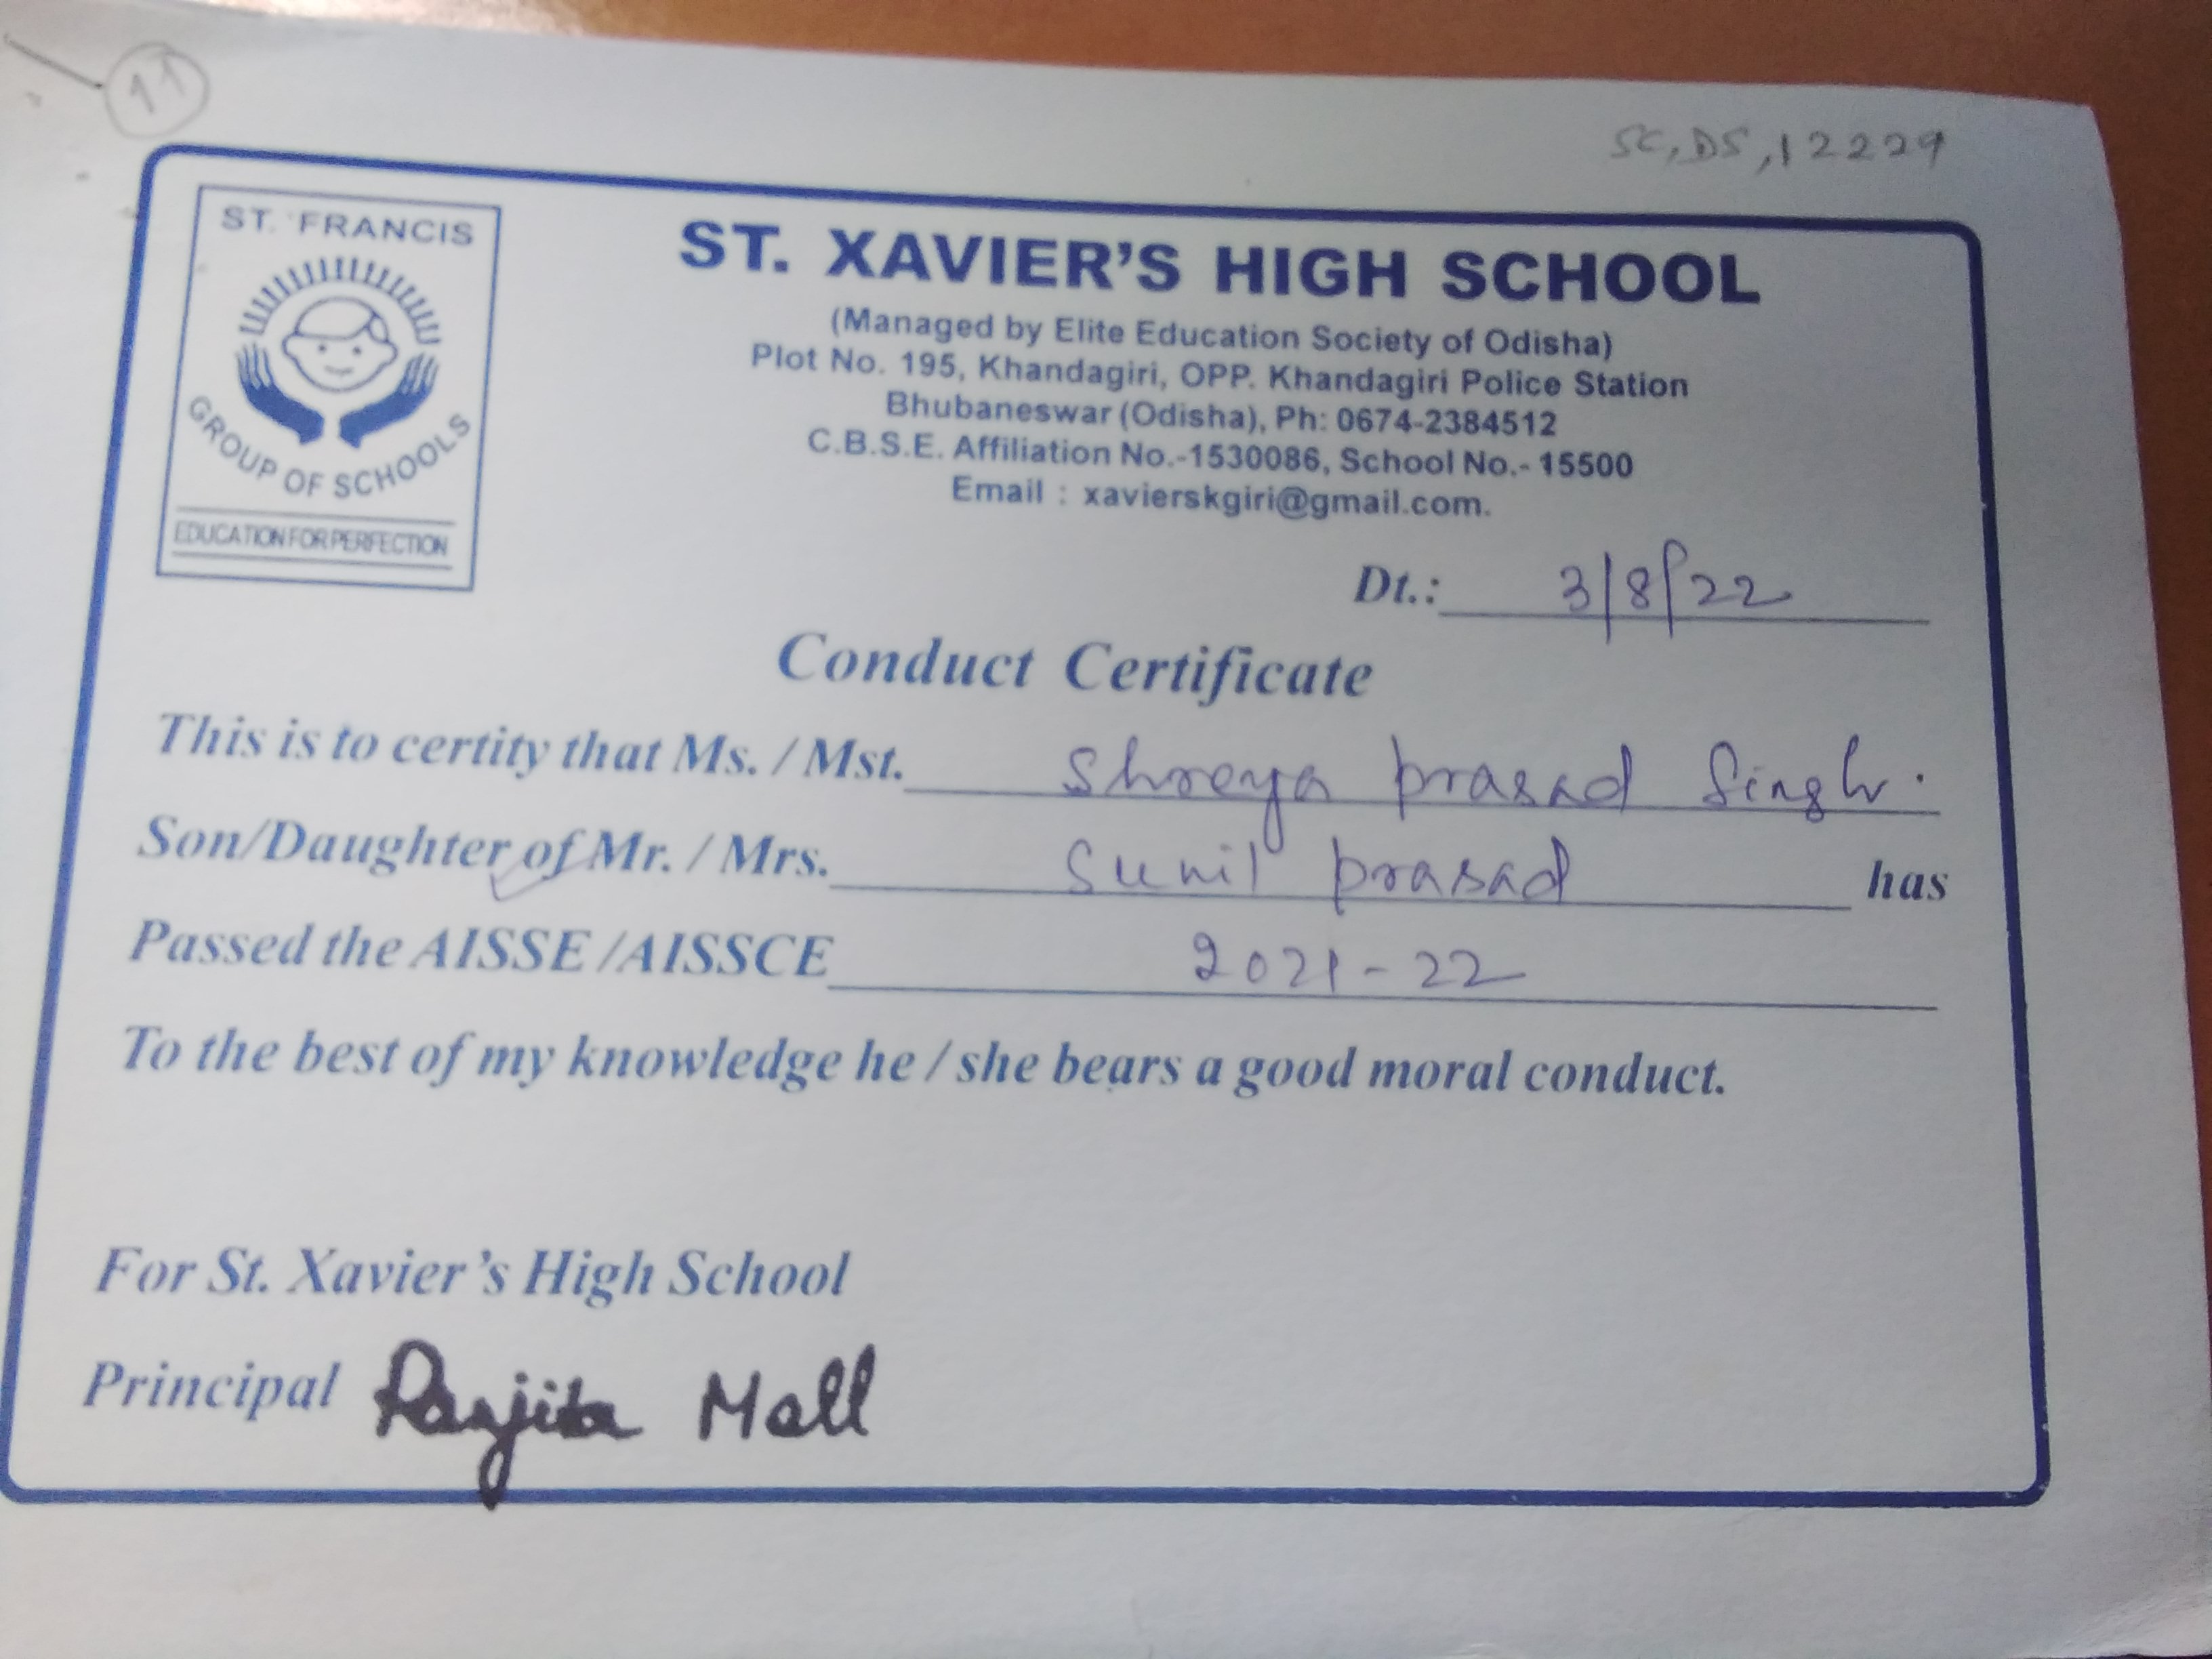 11
SC, DS, 12229
ST. FRANCIS
GROUP OF SCHOOLS
EDUCATION FOR PERFECTION
ST. XAVIER'S HIGH SCHOOL
(Managed by Elite Education Society of Odisha)
Plot No. 195, Khandagiri, OPP. Khandagiri Police Station
Bhubaneswar (Odisha), Ph: 0674-2384512
C.B.S.E. Affiliation No.-1530086, School No.- 15500
Email : xavierskgiri@gmail.com.
Dt.: 3/8/22
Conduct Certificate
This is to certity that Ms. / Mst. Shreya prasad Singh.
Son/Daughter of Mr. / Mrs. Sunil prasad has
Passed the AISSE /AISSCE 2021-22
To the best of my knowledge he / she bears a good moral conduct.
For St. Xavier's High School
Principal Ranjita Mall